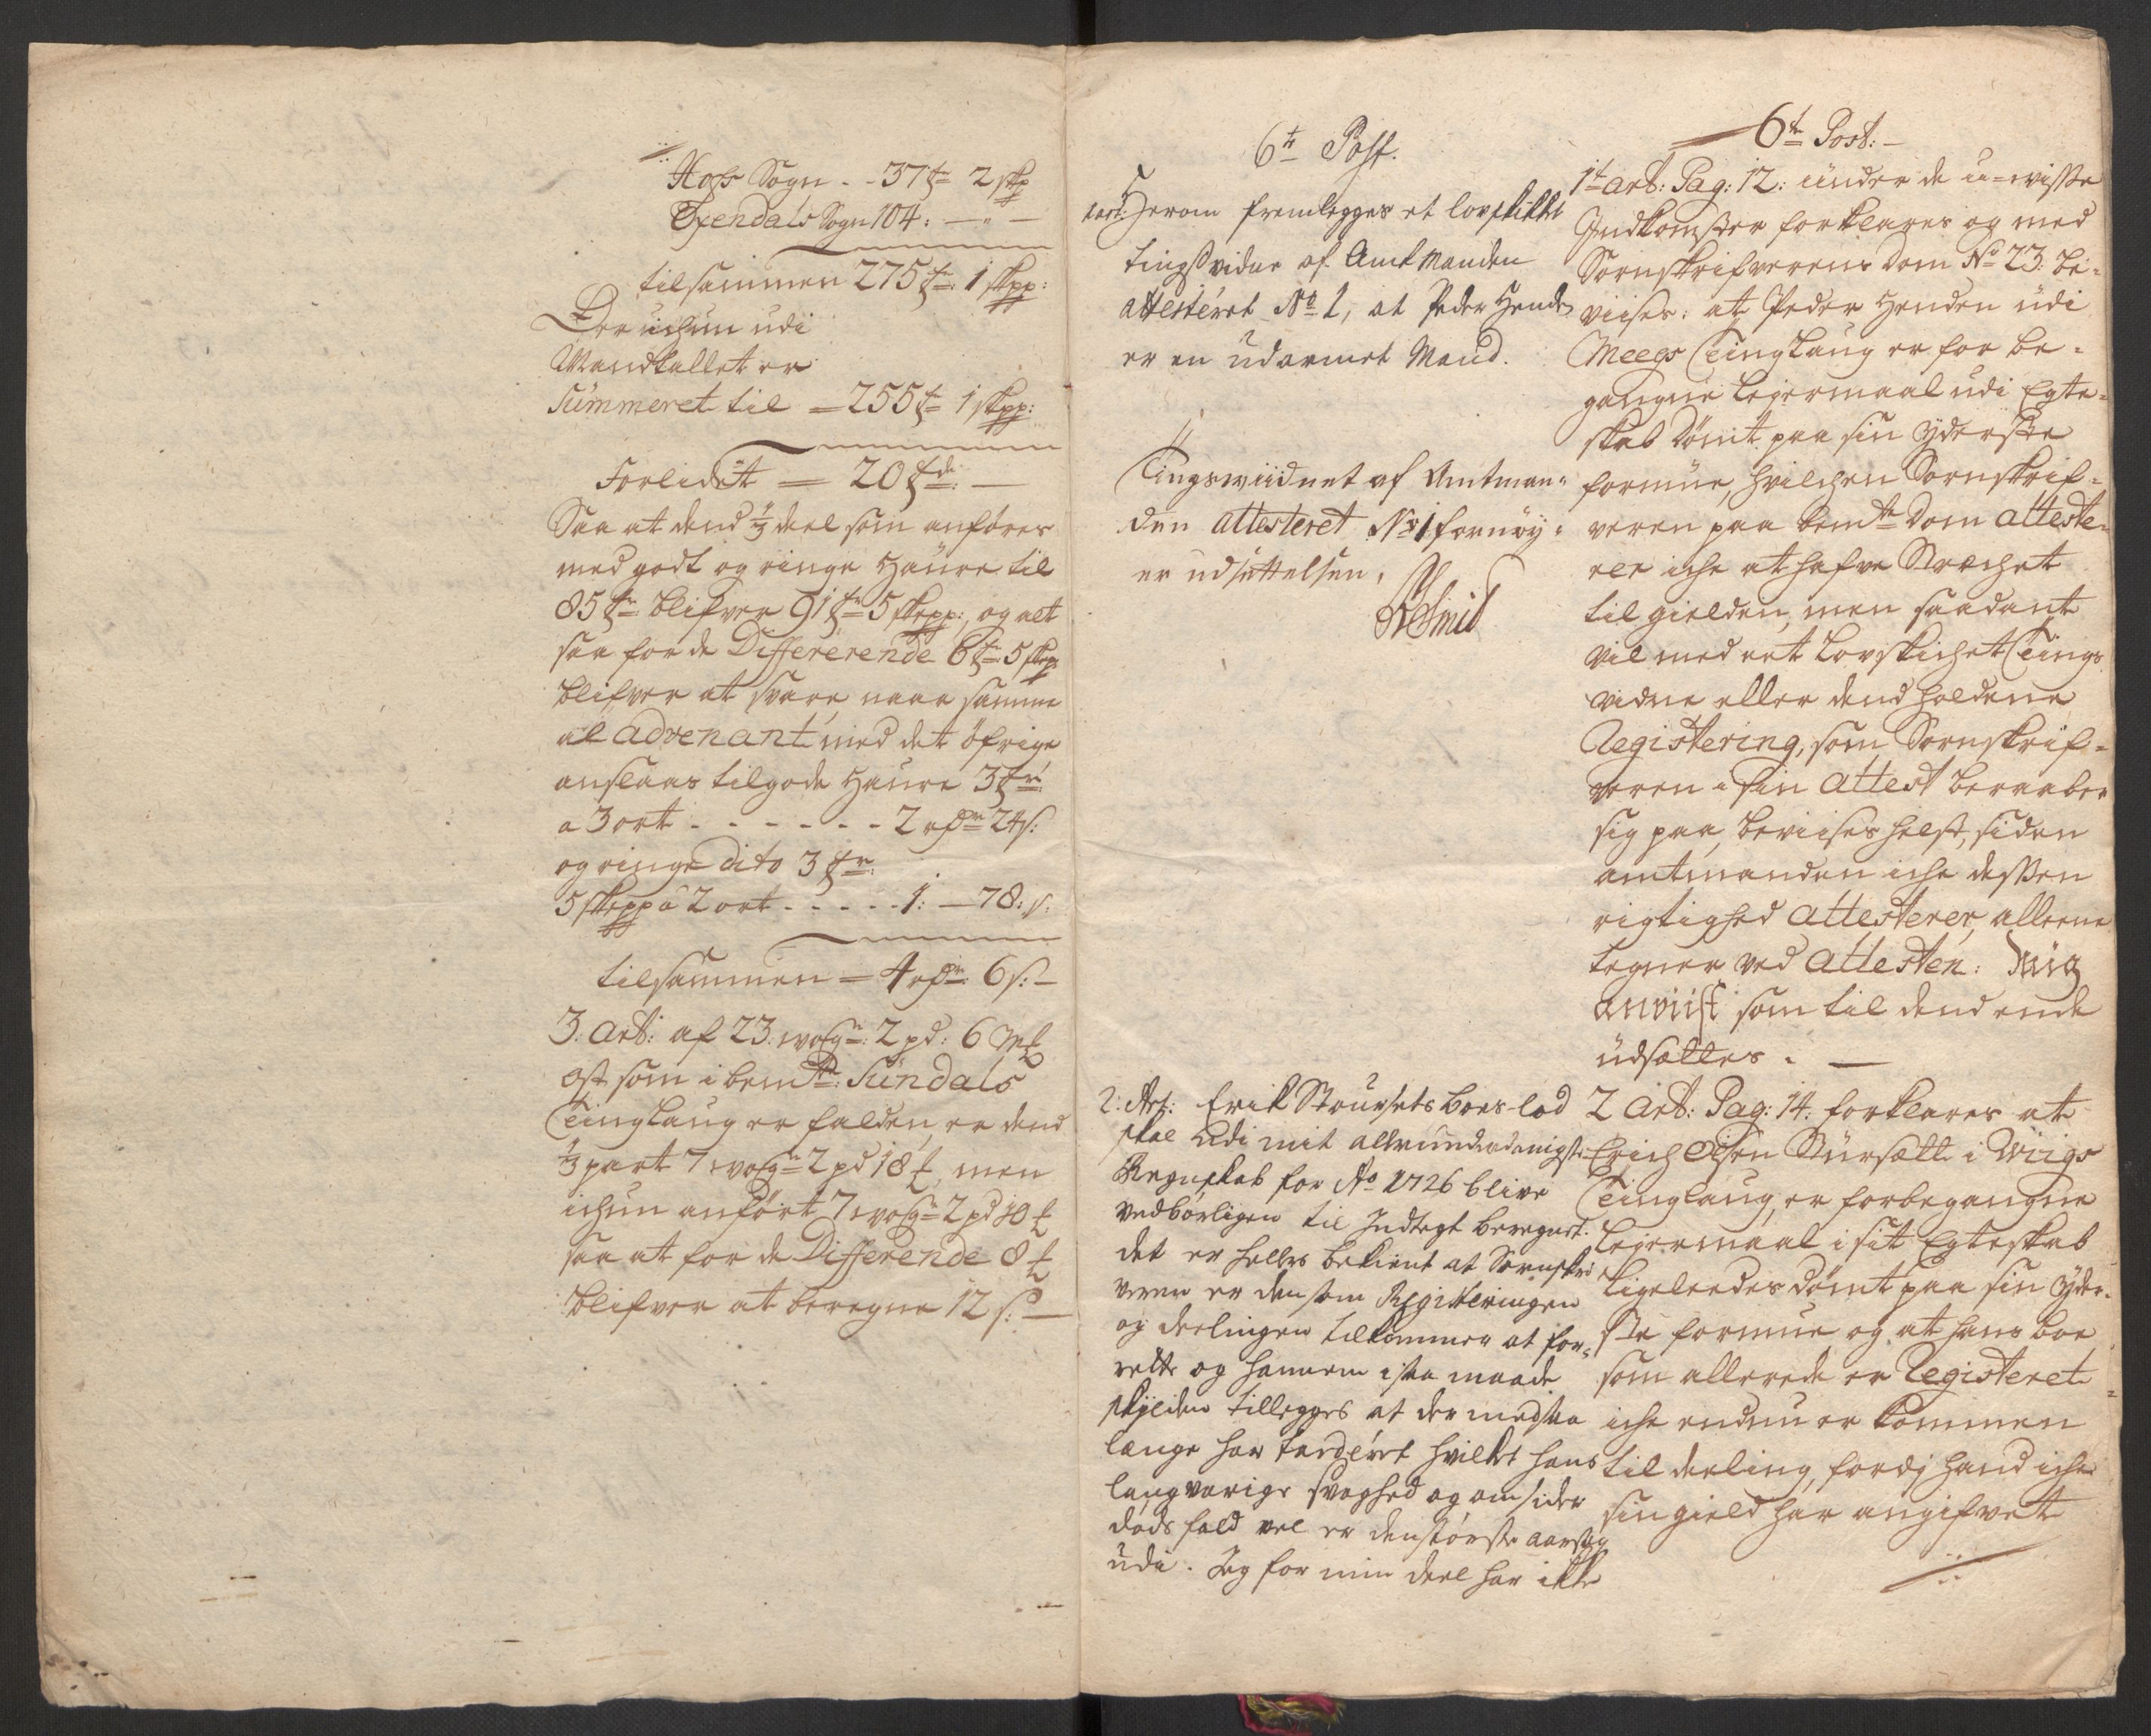 Hofs Sogn - - 37 tr 2 skp
Øxendals Sogn 104: — " —
tilsammen 275 tr 1 skpp:
Der ichun udi
Mandtallet er
Summeret til = 255 tr 1 skpp:
Forlidet = 20 tdr: —
Saa at dend 1/3 deel som anføres
med godt og ringe Haure til
85 tr blifver 91 tr 5 skpp:, og alt
saa for de Differerende 6 tr 5 skp
blifver at svare naar samme
al advenant med det øfrige
anslaas til gode Haure 3 tr:
a 3 ort - - - - - - - 2 rdr 24 s:
og ringe dito 3 tr:
5 skepp a 2 ort - - - - - 1: — 78: s:
tilsammen = 4 rdr 6 s: —
3. Art: af 23. wogr: 2 pd: 6 mk
Ost som i bemte: Sundals
Tinglaug er falden, er dend
1/3 part 7 wogr 2 pd 18 , men
ichun anført 7 wogr 2 pd 10
saa at for de Differende 8
blifver at beregne 12 s: —
6te Post.
1 art: Herom fremlegges et lovskikket
tingsvidne af Amtmanden
attesteret No 1, at Peder Henden
er en udarmet Mand.
Tingswiidnet af Amtman-
den attesteret No 1 fornøy-
er udsettelsen.
Smid
2: Art: Erik Stoursets boes-lod
skal udi mit allerunderdanigste
Regnskab for Ao 1726 blive
vedbørligen til Indtegt beregnet.
det er helles bekient at Sornskri
veren er den som Registeringen
og deelingen tilkommer at for-
rette og hannem i saa maade
skylden tillegges at der med saa
længe har tarderet hvilket hans
langvarige svaghed og omsider
døds fald vel er den største aarsag
udi. Jeg for min deel har ikke
6te Post: —
1te art: Pag: 12: under de u-wisse
Indkomster forklares og med
Sornskrifverens dom No 23: be-
viises: at Peder Henden udi
Meegs Tinglaug er for be-
gangne Leyermaal udi Egte-
skab Dømt paa sin yderste
formue, hvilchen Sornskrif-
veren paa bemte Dom atteste-
rer iche at hafve Strechet
til gielden, men saadant
vil med eet Lovskichet Tings
vidne eller dend holdene
Registering, som Sornskrif-
veren i sin Attest beraaber
sig paa, beviises helst, siden
amtmanden iche dessen
rigtighed attesterer, alleene
tegner ved attesten: Mig
anviist som til dend ende
udsættes. —
2 Art: Pag: 14: forklares at
Erich Olsen Stursætt i Wiigs
Tinglaug, er forbegangne
Leyermaal i sit Egteskab
ligeleedes dømt paa sin yder-
ste formue og at hans boe
som allerede er Registeret
iche endnu er kommen
til deeling, fordj hand iche
sin gield har angifvett